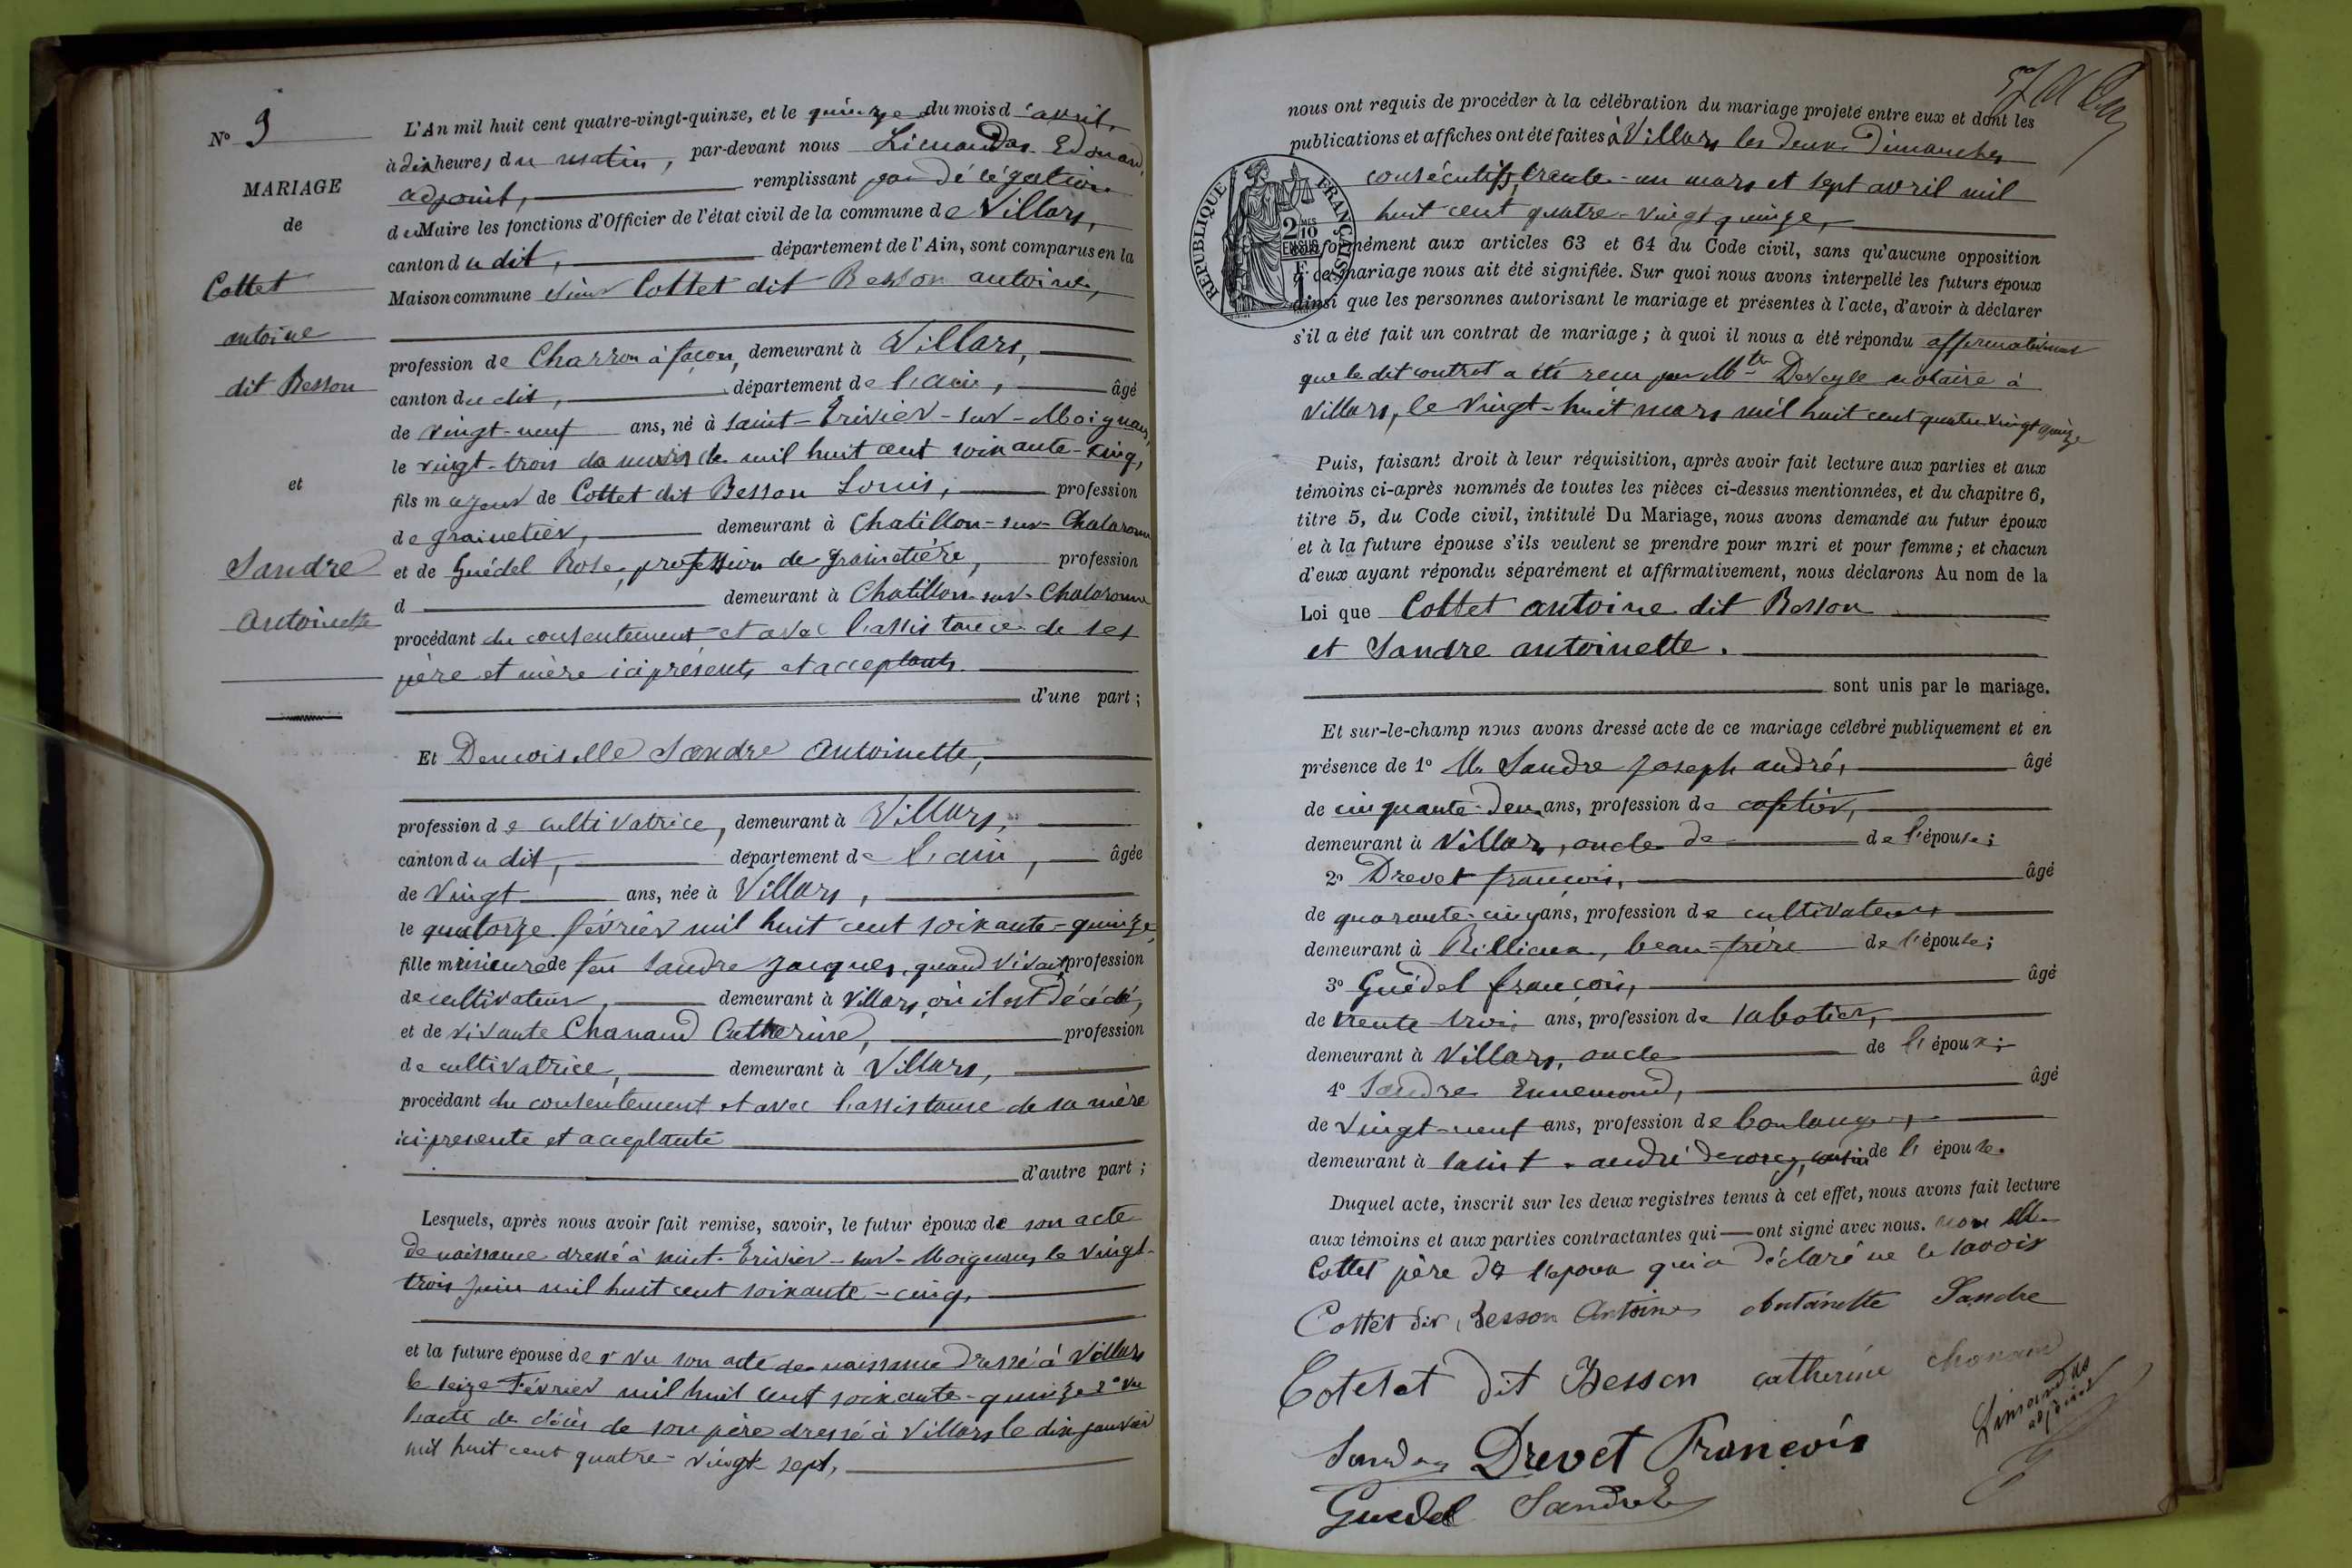 N° 9
MARIAGE
de
Cottet
antoine
dit Besson
et
Sandre
Antoinette
L'An mil huit cent quatre-vingt-quinze, et le quinze du mois d'avril,
à dix heures du matin, par-devant nous Limandas Edouard,
adjoint, remplissant par délégation
du Maire les fonctions d'Officier de l'état civil de la commune de Villars,
canton du dit, département de l'Ain, sont comparus en la
Maison commune sieur Cottet dit Besson antoine,
profession de Charron à façon, demeurant à Villars,
canton du dit, département de l'ain, âgé
de vingt-neuf ans, né à saint-Trivier-sur-Moignans,
le vingt-trois de mil huit cent soixante-cinq,
fils majeur de Cottet dit Besson Louis, profession
de grainetier, demeurant à Chatillon-sur-Chalaronne
et de Guédel Rose, profession de grainetière, profession
d demeurant à Chatillon-sur-Chalaronne
procédant du consentement et avec l'assistance de ses
père et mère ici présents et acceptants
d'une part ;
Et Demoiselle Sandre Antoinette,
profession de cultivatrice, demeurant à Villars,
canton du dit, département de l'ain, âgée
de vingt ans, née à Villars,
le quatorze février mil huit cent soixante-quinze,
fille mineure de feu Sandre Jacques, quand vivait profession
de cultivateur, demeurant à Villars, où il est décédé,
et de vivante Chanand Catherine, profession
de cultivatrice, demeurant à Villars,
procédant du consentement et avec l'assistance de sa mère
ici présente et acceptante
d'autre part ;
Lesquels, après nous avoir fait remise, savoir, le futur époux de son acte
de naissance dressé à saint-Trivier-sur-Moignans, le vingt-
trois juin mil huit cent soixante-cinq,
et la future épouse de 1° vu son acte de naissance dressé à Villars
le seize Février mil huit cent soixante-quinze 2° vu
l'acte de décès de son père dressé à Villars le dix janvier
mil huit cent quatre-vingt sept,
57
nous ont requis de procéder à la célébration du mariage projeté entre eux et dont les
publications et affiches ont été faites à Villars les deux Dimanches
consécutifs, trente-un mars et sept avril mil
huit cent quatre-vingt quinze,
RÉPUBLIQUE FRANÇAISE
2 MES
10
EN SUS
1 F
conformément aux articles 63 et 64 du Code civil, sans qu'aucune opposition
à ce mariage nous ait été signifiée. Sur quoi nous avons interpellé les futurs époux
ainsi que les personnes autorisant le mariage et présentes à l'acte, d'avoir à déclarer
s'il a été fait un contrat de mariage ; à quoi il nous a été répondu affirmativement
que le dit contrat a été reçu par Mtre notaire à
Villars, le vingt-huit mars mil huit cent quatre-vingt quinze
Puis, faisant droit à leur réquisition, après avoir fait lecture aux parties et aux
témoins ci-après nommés de toutes les pièces ci-dessus mentionnées, et du chapitre 6,
titre 5, du Code civil, intitulé Du Mariage, nous avons demandé au futur époux
et à la future épouse s'ils veulent se prendre pour mari et pour femme ; et chacun
d'eux ayant répondu séparément et affirmativement, nous déclarons Au nom de la
Loi que Cottet antoine dit Besson
et Sandre antoinette.
sont unis par le mariage.
Et sur-le-champ nous avons dressé acte de ce mariage célébré publiquement et en
présence de 1° Mr Sandre Joseph andré, âgé
de cinquante-deux ans, profession de cafetier,
demeurant à Villars, oncle de de l'épouse ;
2° Drevet françois, âgé
de quarante-cinq ans, profession de cultivateur,
demeurant à Rillieux, beau-frère de l'épouse ;
3° Guédel françois, âgé
de trente-trois ans, profession de sabotier,
demeurant à Villars, oncle de l'époux ;
4° Sandre Ennemond, âgé
de vingt-neuf ans, profession de boulanger,
demeurant à saint-andré de corcy, cousin de l'épouse.
Duquel acte, inscrit sur les deux registres tenus à cet effet, nous avons fait lecture
aux témoins et aux parties contractantes qui ont signé avec nous. non
Cottet père de l'époux qui a déclaré ne le savoir
Cottet dit Besson Antoine Antoinette Sandre
Cotetet dit Besson catherine chanand
Limandas
adjoint
Sandre Drevet François
Guedel Sandre E